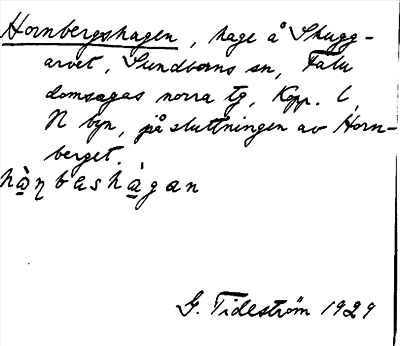 Hornbergshagen, hage å Skugg-
arvet, Sundborns sn, Falu
domsagas norra tg, Kopp. l,
N byn, på sluttningen av Horn-
berget.
G. Tideström 1929